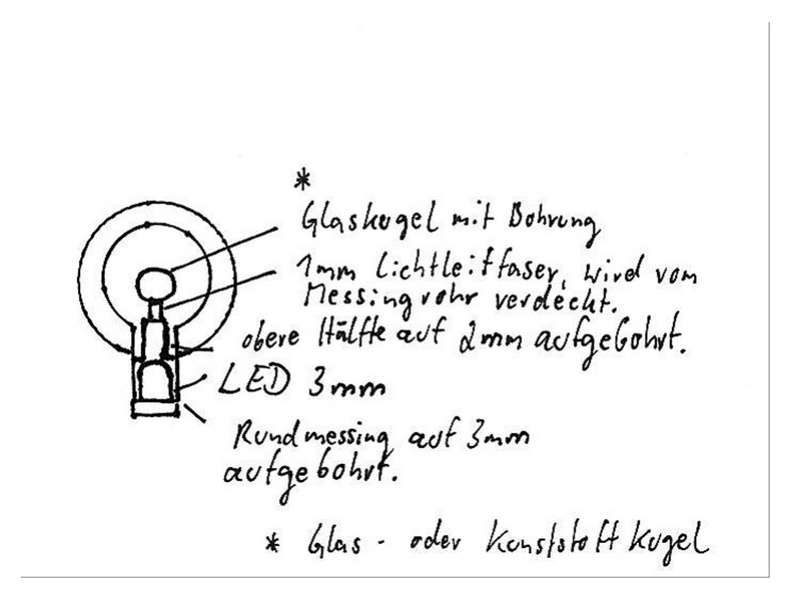 *
Glaskugel mit Bohrung
1mm Lichtleitfaser, wird vom
Messingrohr verdeckt.
obere Hälfte auf 2mm aufgebohrt.
LED 3mm
Rundmessing auf 3mm
aufgebohrt.
* Glas- oder Kunststoffkugel